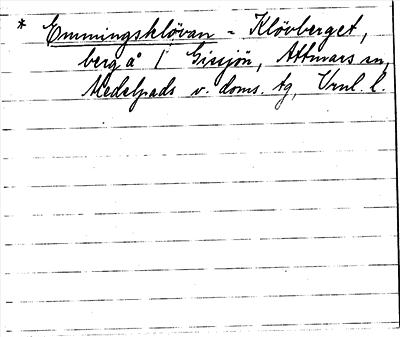 * Emmingsklövan - Klövberget,
berg å / Gissjön, Attmars sn,
Medelpads v. doms. tg, Vrnl. l.